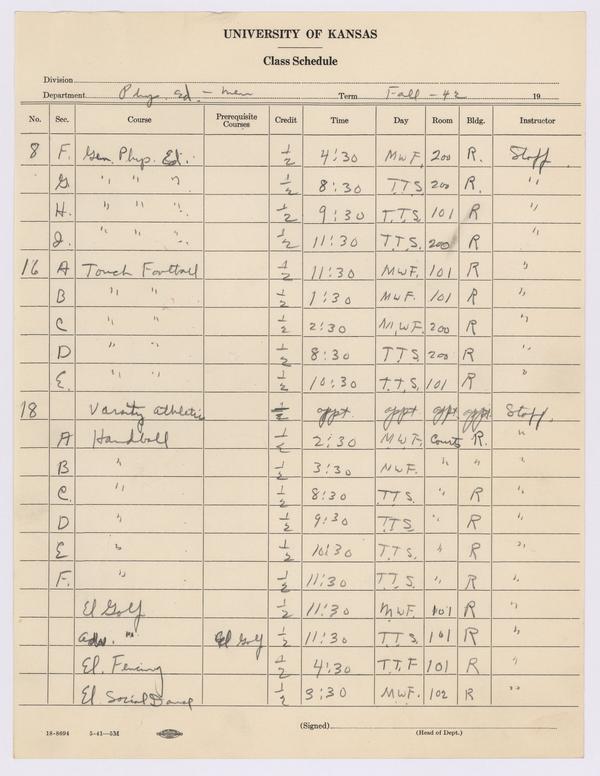 UNIVERSITY OF KANSAS
Class Schedule
Division
Department Phys. Ed. - Men Term Fall - 42 19
No. Sec. Course Prerequisite Courses Credit Time Day Room Bldg. Instructor
8 F. Gen. Phys. Ed. 1/2 4:30 MWF. 200 R. Staff.
G. " " " 1/2 8:30 T.T.S 200 R. "
H. " " " 1/2 9:30 T.T.S. 101 R "
J. " " " 1/2 11:30 T.T.S. 200 R "
16 A Touch Football 1/2 11:30 MWF. 101 R "
B " " 1/2 1:30 MWF. 101 R "
C " " 1/2 2:30 M,WF. 200 R "
D " " 1/2 8:30 TTS. 200 R "
E. " " 1/2 10:30 T.T.S. 101 R "
18 Varsity athletic 1/2 appt. appt appt. appt. Staff.
A Handball 1/2 2:30 MWF. Courts R. "
B " 1/2 3:30 MWF. " " "
C. " 1/2 8:30 TTS. " R "
D " 1/2 9:30 TTS " R "
E " 1/2 10:30 T.T.S. " R "
F. " 1/2 11:30 T.T.S. " R "
El Golf 1/2 11:30 MWF. 101 R "
adv. " El Golf 1/2 11:30 T.T.S. 101 R "
El. Fencing 1/2 4:30 T.T.F 101 R "
El Social Dance 1/2 3:30 MWF. 102 R "
(Signed)
18-8694 5-41-5M (Head of Dept.)